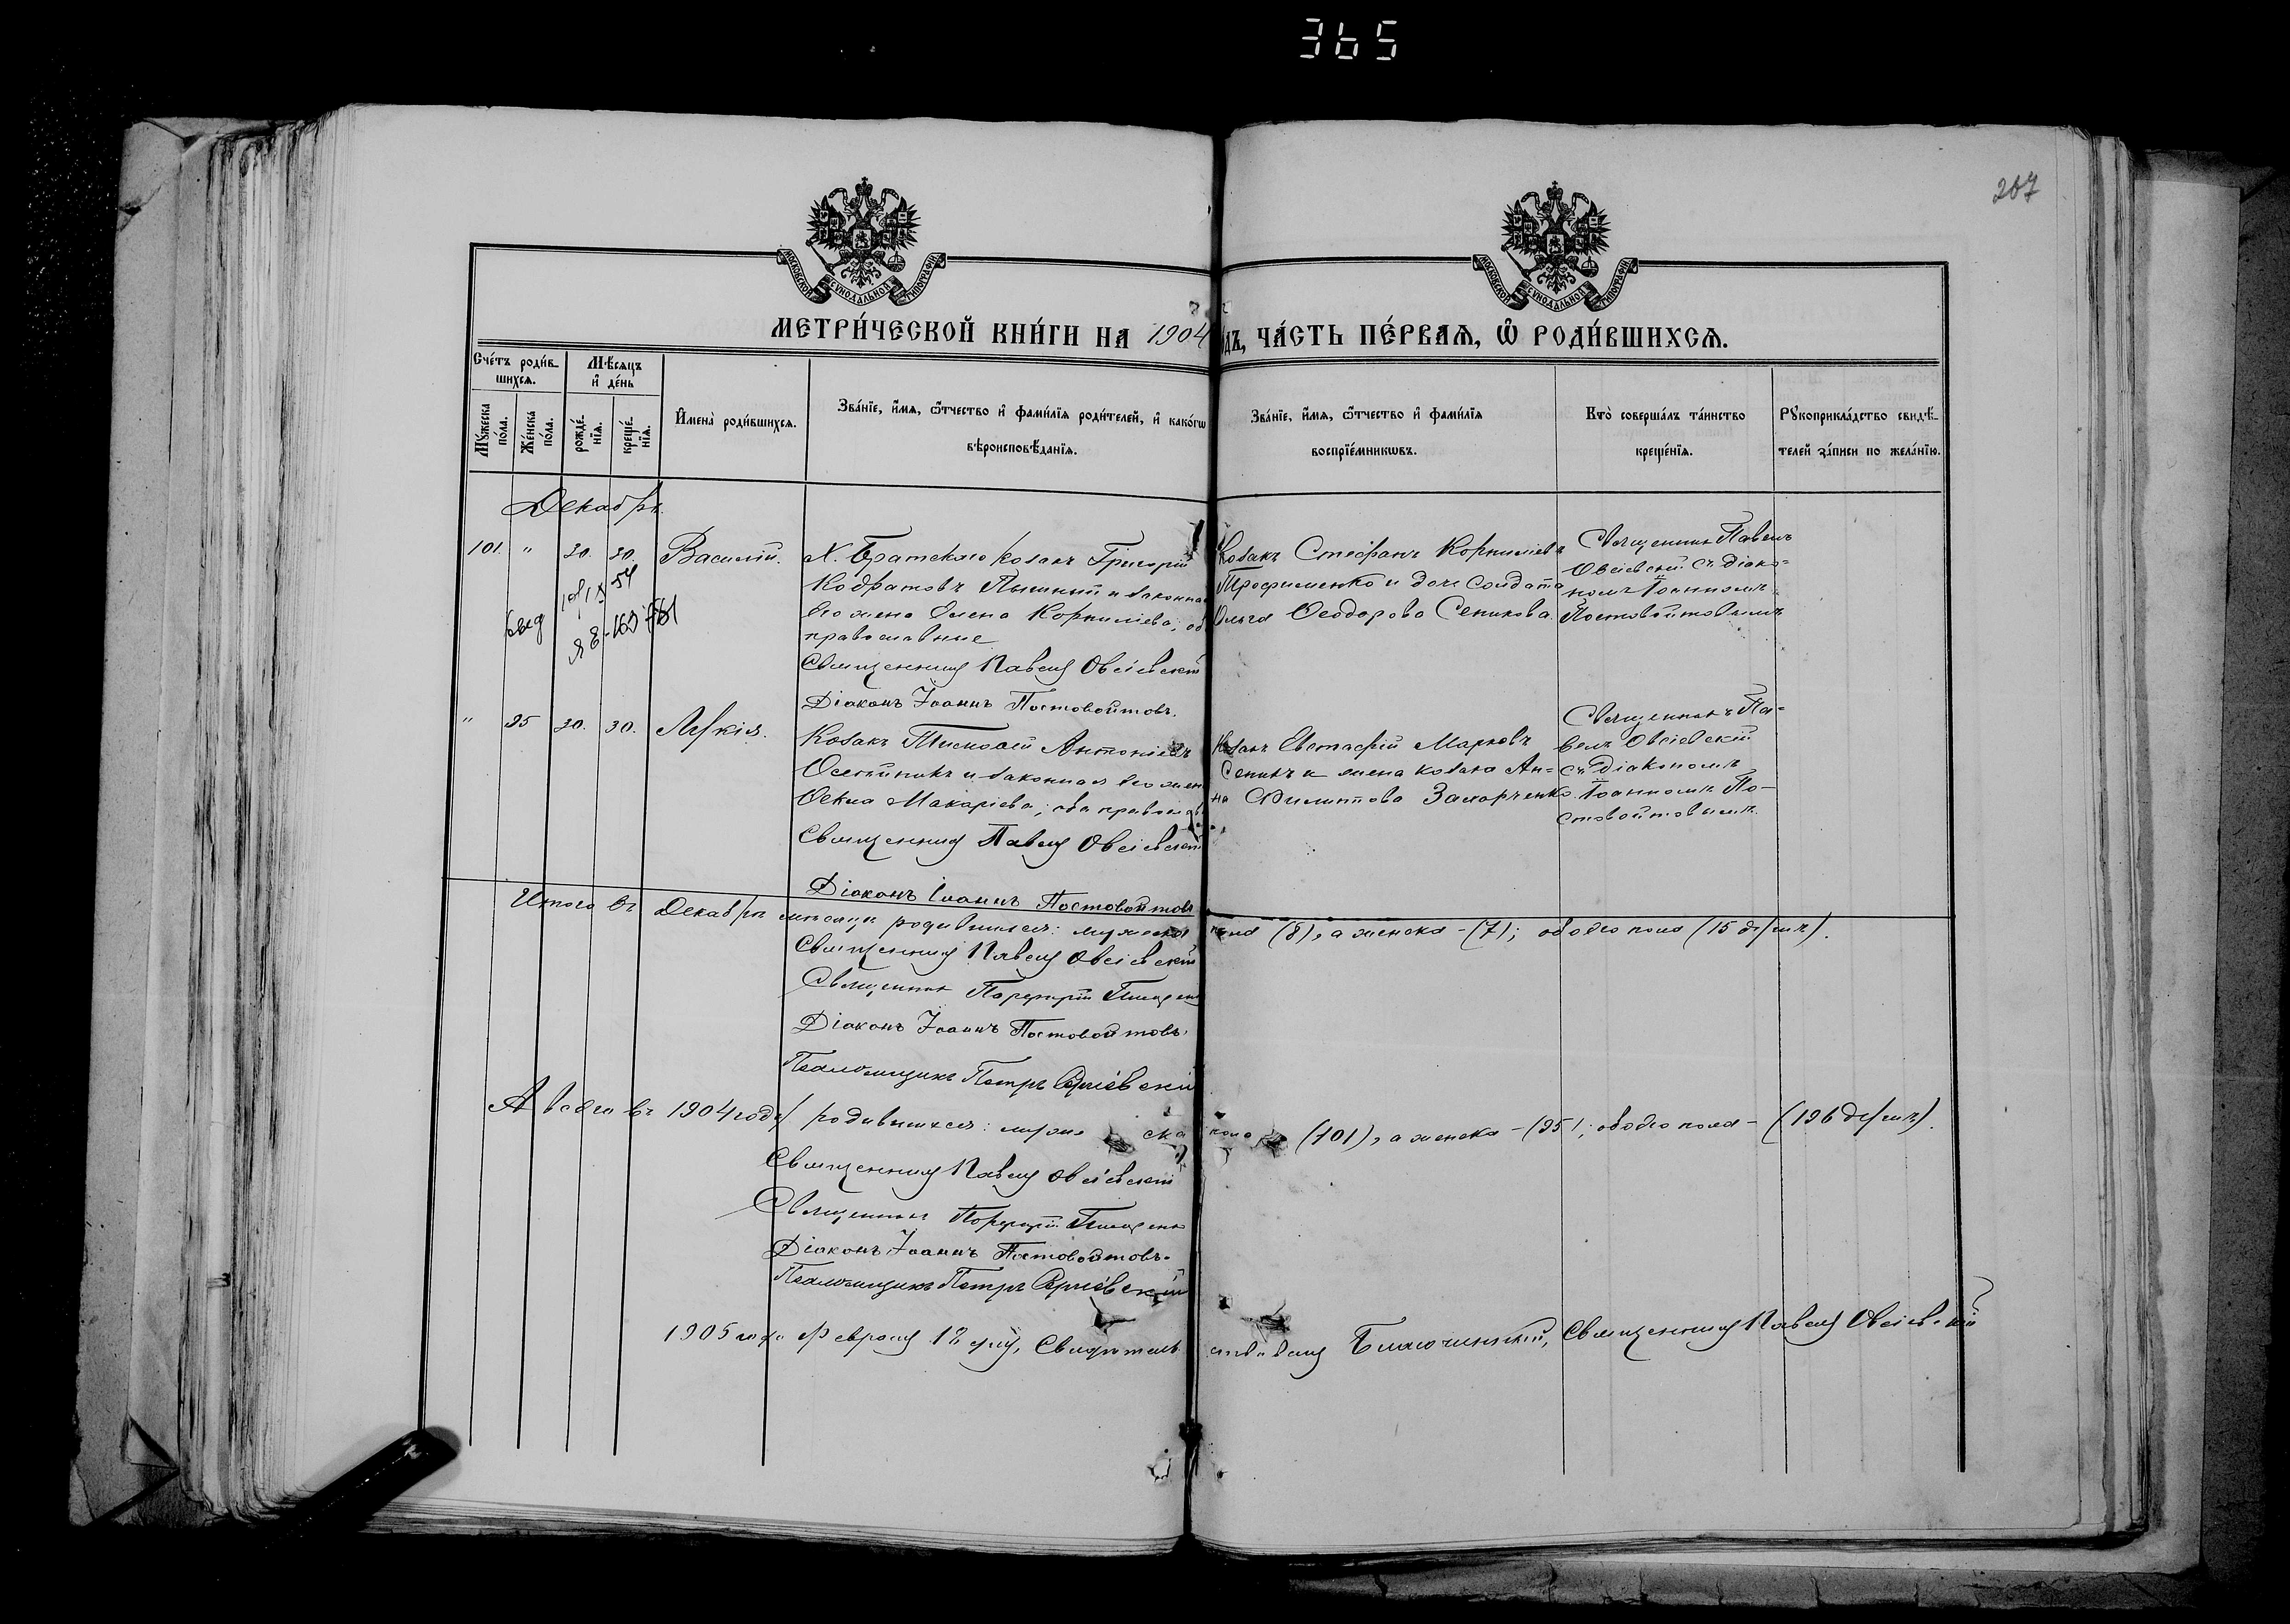 365
207
МОСКОВСКОЙ СУНОДАЛЬНОЙ ТИПОГРАФІИ
МОСКОВСКОЙ СУНОДАЛЬНОЙ ТИПОГРАФІИ
МЕТРИ́ЧЕСКОЙ КНИ́ГИ НА 1904
ДЪ, ЧА́СТЬ ПЕ́РВАѦ, Ѿ РОДИ́ВШИХСѦ.
Сче́тъ роди́в-
шихсѧ.
Мѣ́сѧцъ
и҆ де́нь
Му́жеска по́ла.
Же́нска по́ла.
рожде́-
нїѧ.
креще́-
нїѧ.
И҆мена̀ роди́вшихсѧ.
Зва́нїе, и҆́мѧ, ѻ҆́тчество и҆ фами́лїѧ роди́телей, и҆ како́гѡ
вѣроисповѣ́данїѧ.
Зва́нїе, и҆́мѧ, ѻ҆́тчество и҆ фами́лїѧ
воспрїе́мникѡвъ.
Кто̀ соверша́лъ та́инство
креще́нїѧ.
Рꙋкоприкла́дство свидѣ́-
телей за́писи по жела́нїю.
Декабрь
101. " 20. 30. Василій.
Х. Братского козакъ Григорій
Кодратовъ и законная
его жена Елена Корниліева; об
православные
Священникъ Павелъ Овсіевскій
Діаконъ Іоаннъ Постовойтовъ.
Козакъ Стефанъ Корниліевъ
Трофименко и дочь солдата
Ольга Ѳеодорова Сеникова.
Священникъ Павелъ
Овсіевскій съ діако-
номъ Іоанномъ
Постовойтовымъ
" 95 20. 30. Лукія.
Козакъ Тимоѳей Антоніевъ
и законная его жен
Ѳекла Макаріева; оба православ
Священникъ Павелъ Овсіевскій
Діаконъ Іоаннъ Постовойтовъ
Козакъ Евстафій Марковъ
Сеникъ и жена козака Ан-
на Филиппова Захарченко.
Священникъ Па-
велъ Овсіевскій
съ Діакономъ
Іоанномъ По-
стовойтовымъ.
Итого въ Декабрѣ мѣсяцѣ родившихся: мужеска пола (8), а женска - (7); обоего пола (15 душъ).
Священникъ Павелъ Овсіевскій
Священникъ Порфирій
Діаконъ Іоаннъ Постовойтовъ.
Псаломщикъ Петръ
А всего въ 1904 году родившихся: муже ска пола (101), а женска - (95); обоего пола - (196 душъ).
Священникъ Павелъ Овсіевскій
Священникъ Порфирій
Діаконъ Іоаннъ Постовойтовъ.
Псаломщикъ Петръ
1905 года Февраля 12 дня, Свидѣтель ствовалъ Благочинный, Священникъ Павелъ Овсіевскій